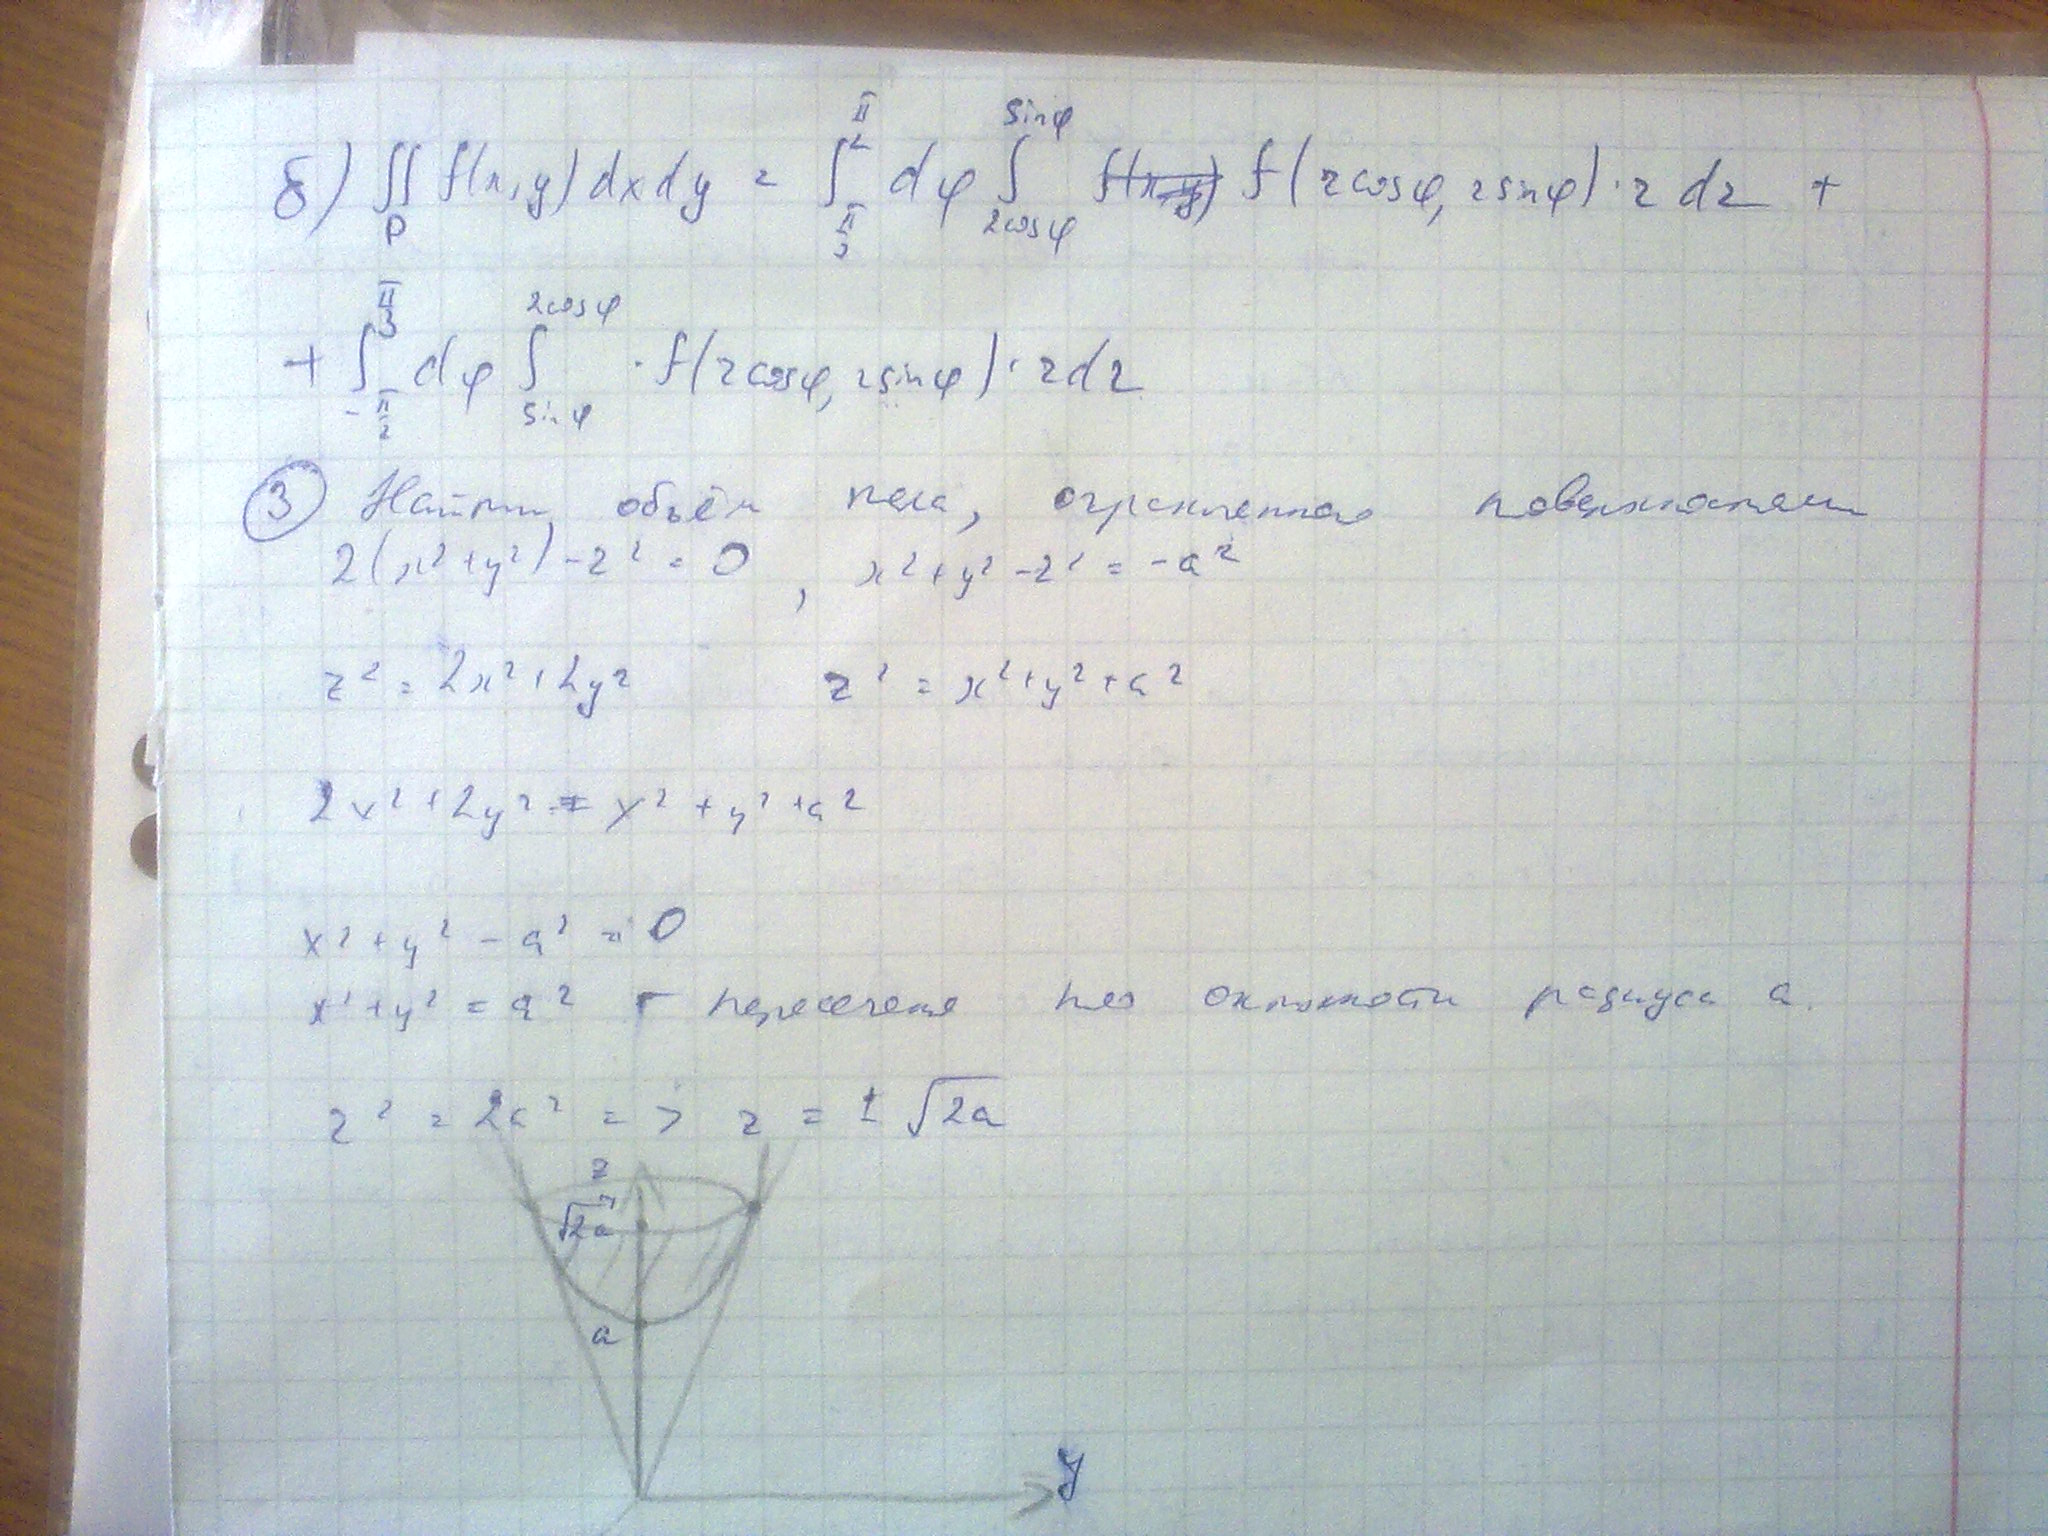 б) ∬_P f(x,y) dx dy = ∫_{π/3}^{π/2} dφ ∫_{2cosφ}^{sinφ} f(x,y) f(r cosφ, r sinφ)·r dr +
+ ∫_{-π/2}^{π/3} dφ ∫_{sinφ}^{2cosφ} · f(r cosφ, r sinφ)·r dr
③ Найти объём тела, ограниченного поверхностями
2(x²+y²)-z² = 0, x²+y²-z² = -a²
z² = 2x²+2y² z² = x²+y²+a²
2x²+2y² = x²+y²+a²
x²+y²-a² = 0
x²+y² = a² - пересечение по окружности радиуса a.
z² = 2a² => z = ± √2a
z
√2a
a
y